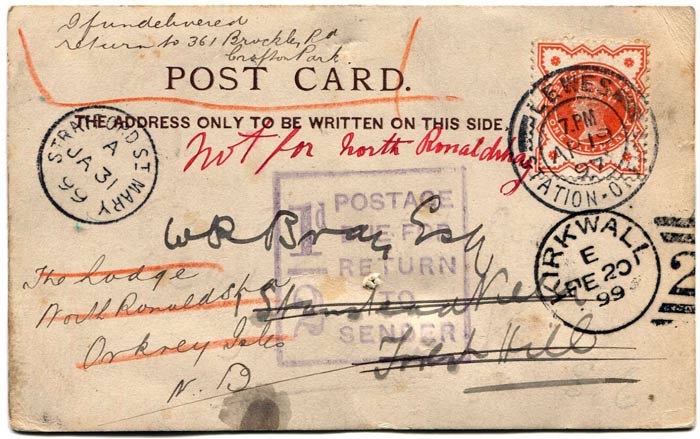 If undelivered
return to 361 Brockley Rd
Crofton Park
POST CARD.
THE ADDRESS ONLY TO BE WRITTEN ON THIS SIDE.
Not for North Ronaldshay
STRATFORD ST MARY
A
JA 31
99
LEWES
7.PM
97
STATION-O
1/2d
POSTAGE
DUE FOR
RETURN
TO
SENDER
W R Bray Esq
Stanstead
Forest Hill
The Lodge
North Ronaldspa
Orkney Isles
N. B
KIRKWALL
E
FE 20
99